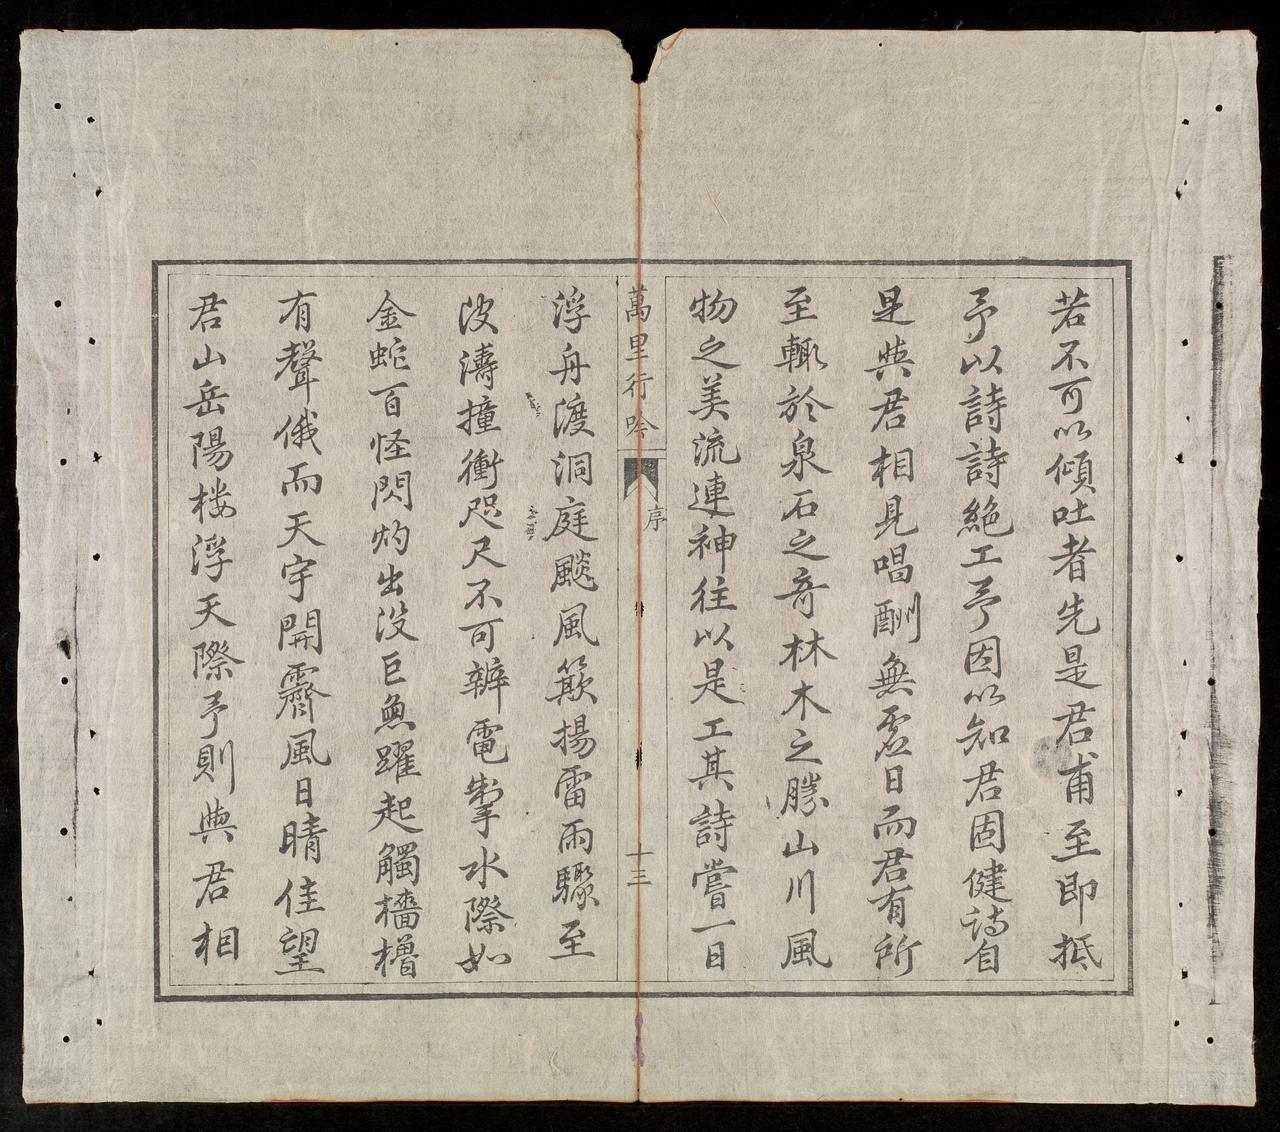 若不可以傾吐者先是君甫至即抵
予以詩詩絶工予因以知君固健詩自
是與君相見唱酬無虛日而君有所
至輙於泉石之奇林木之勝山川風
物之美流連神往以是工其詩嘗一日
萬里行吟
序
十三
浮舟渡洞庭颷風簸揚雷雨驟至
波濤撞衝咫尺不可辧電掣水際如
金蛇百怪閃灼出没巨魚躍起觸檣櫓
有聲俄而天宇開霽風日晴佳望
君山岳陽楼浮天際予則與君相